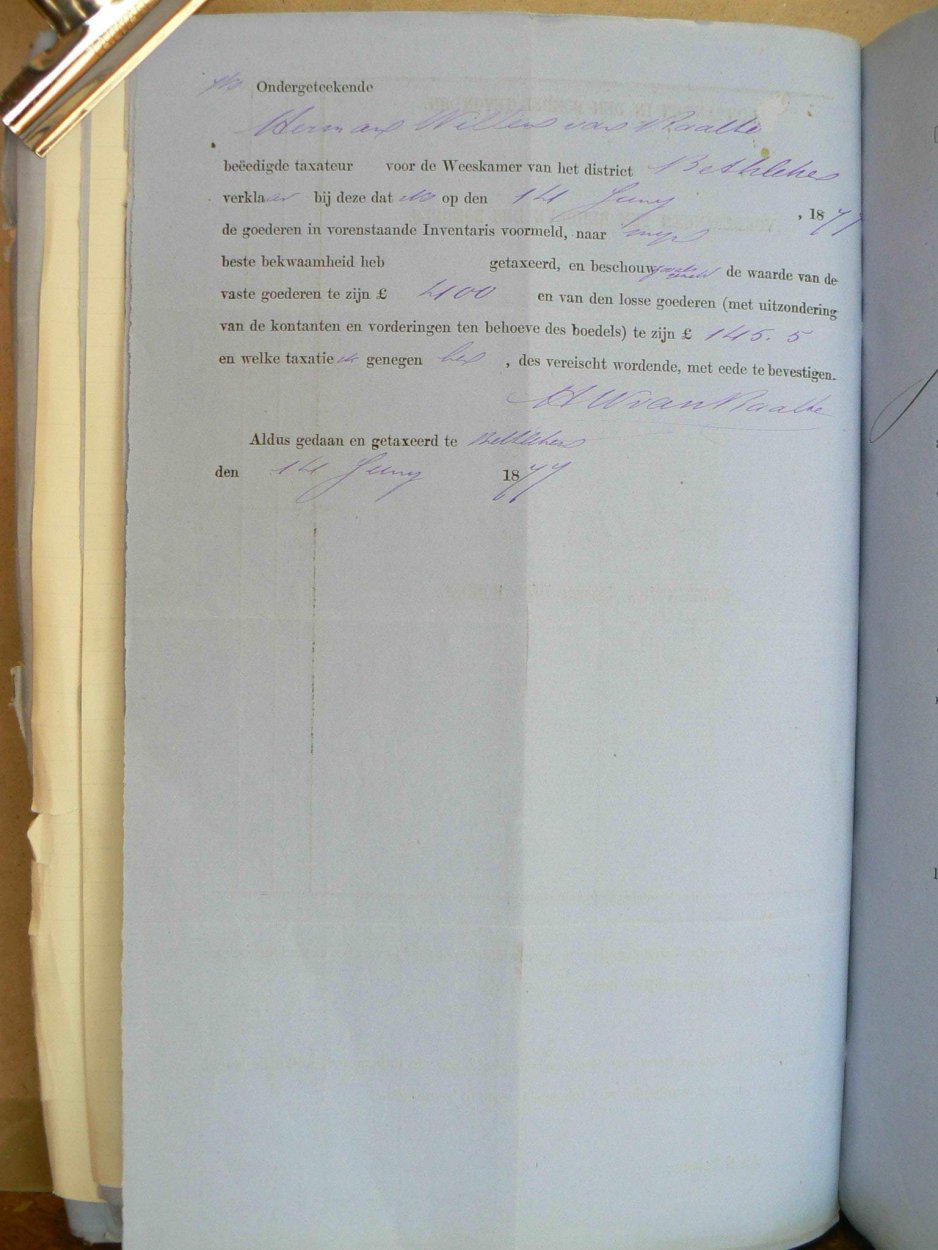 Ondergeteekende
Herman Willem van Raalte
beëedigde taxateur voor de Weeskamer van het district Bethlehem
verklaar bij deze dat ik op den 14 Juny , 1877
de goederen in vorenstaande Inventaris voormeld, naar myn
beste bekwaamheid heb getaxeerd, en beschouw de waarde van de
vaste goederen te zijn £ 400 en van den losse goederen (met uitzondering
van de kontanten en vorderingen ten behoeve des boedels) te zijn £ 145. 5
en welke taxatie ik genegen ben , des vereischt wordende, met eede te bevestigen.
H W van Raalte
Aldus gedaan en getaxeerd te Bethlehem
den 14 Juny 1877